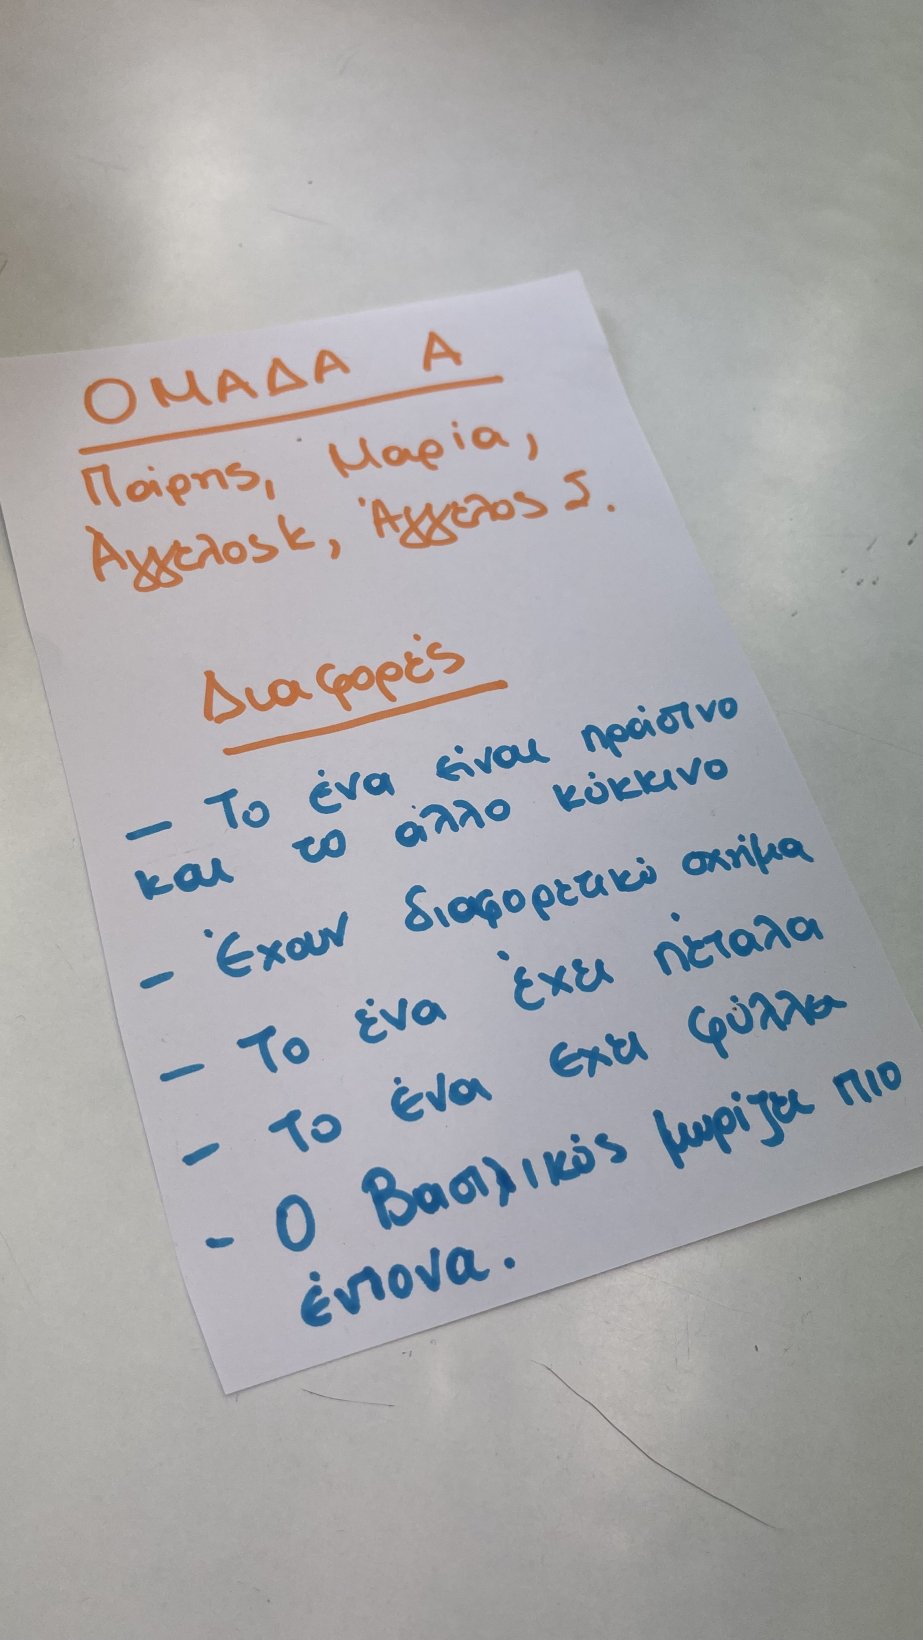 ΟΜΑΔΑ Α
Πάρης, Μαρία,
Άγγελος Κ, Άγγελος Σ.
Διαφορές
- Το ένα είναι πράσινο
και το άλλο κόκκινο
- Έχουν διαφορετικό σχήμα
- Το ένα έχει πέταλα
- Το ένα εχει φύλλα
- Ο Βασιλικός μυρίζει πιο
έντονα.